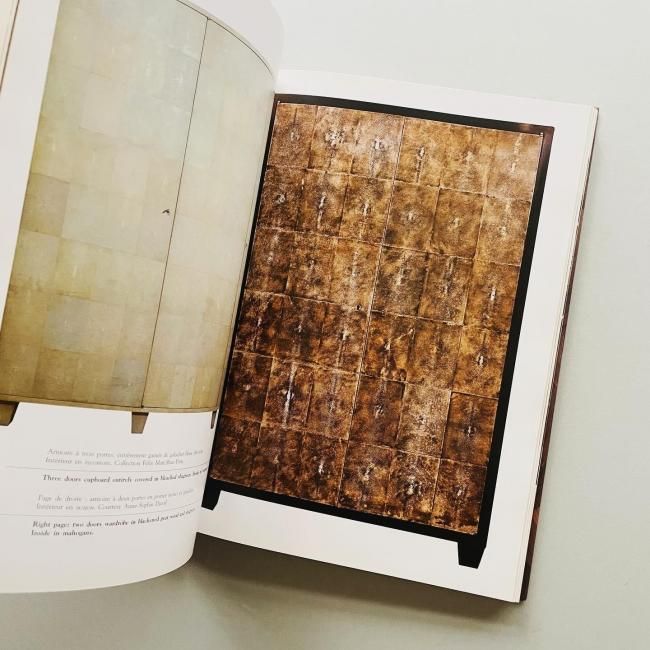 Armoire à trois portes, entièrement gainée de galuchat
Intérieur en sycomore. Collection Félix
Three doors cupboard entirely covered in bleached shagreen. Inside in
Page de droite : armoire à deux portes en poirier noirci et
Intérieur en acajou. Courtesy Anne-Sophie Duval
Right page: two doors wardrobe in blackened pear wood and shagreen.
Inside in mahogany.